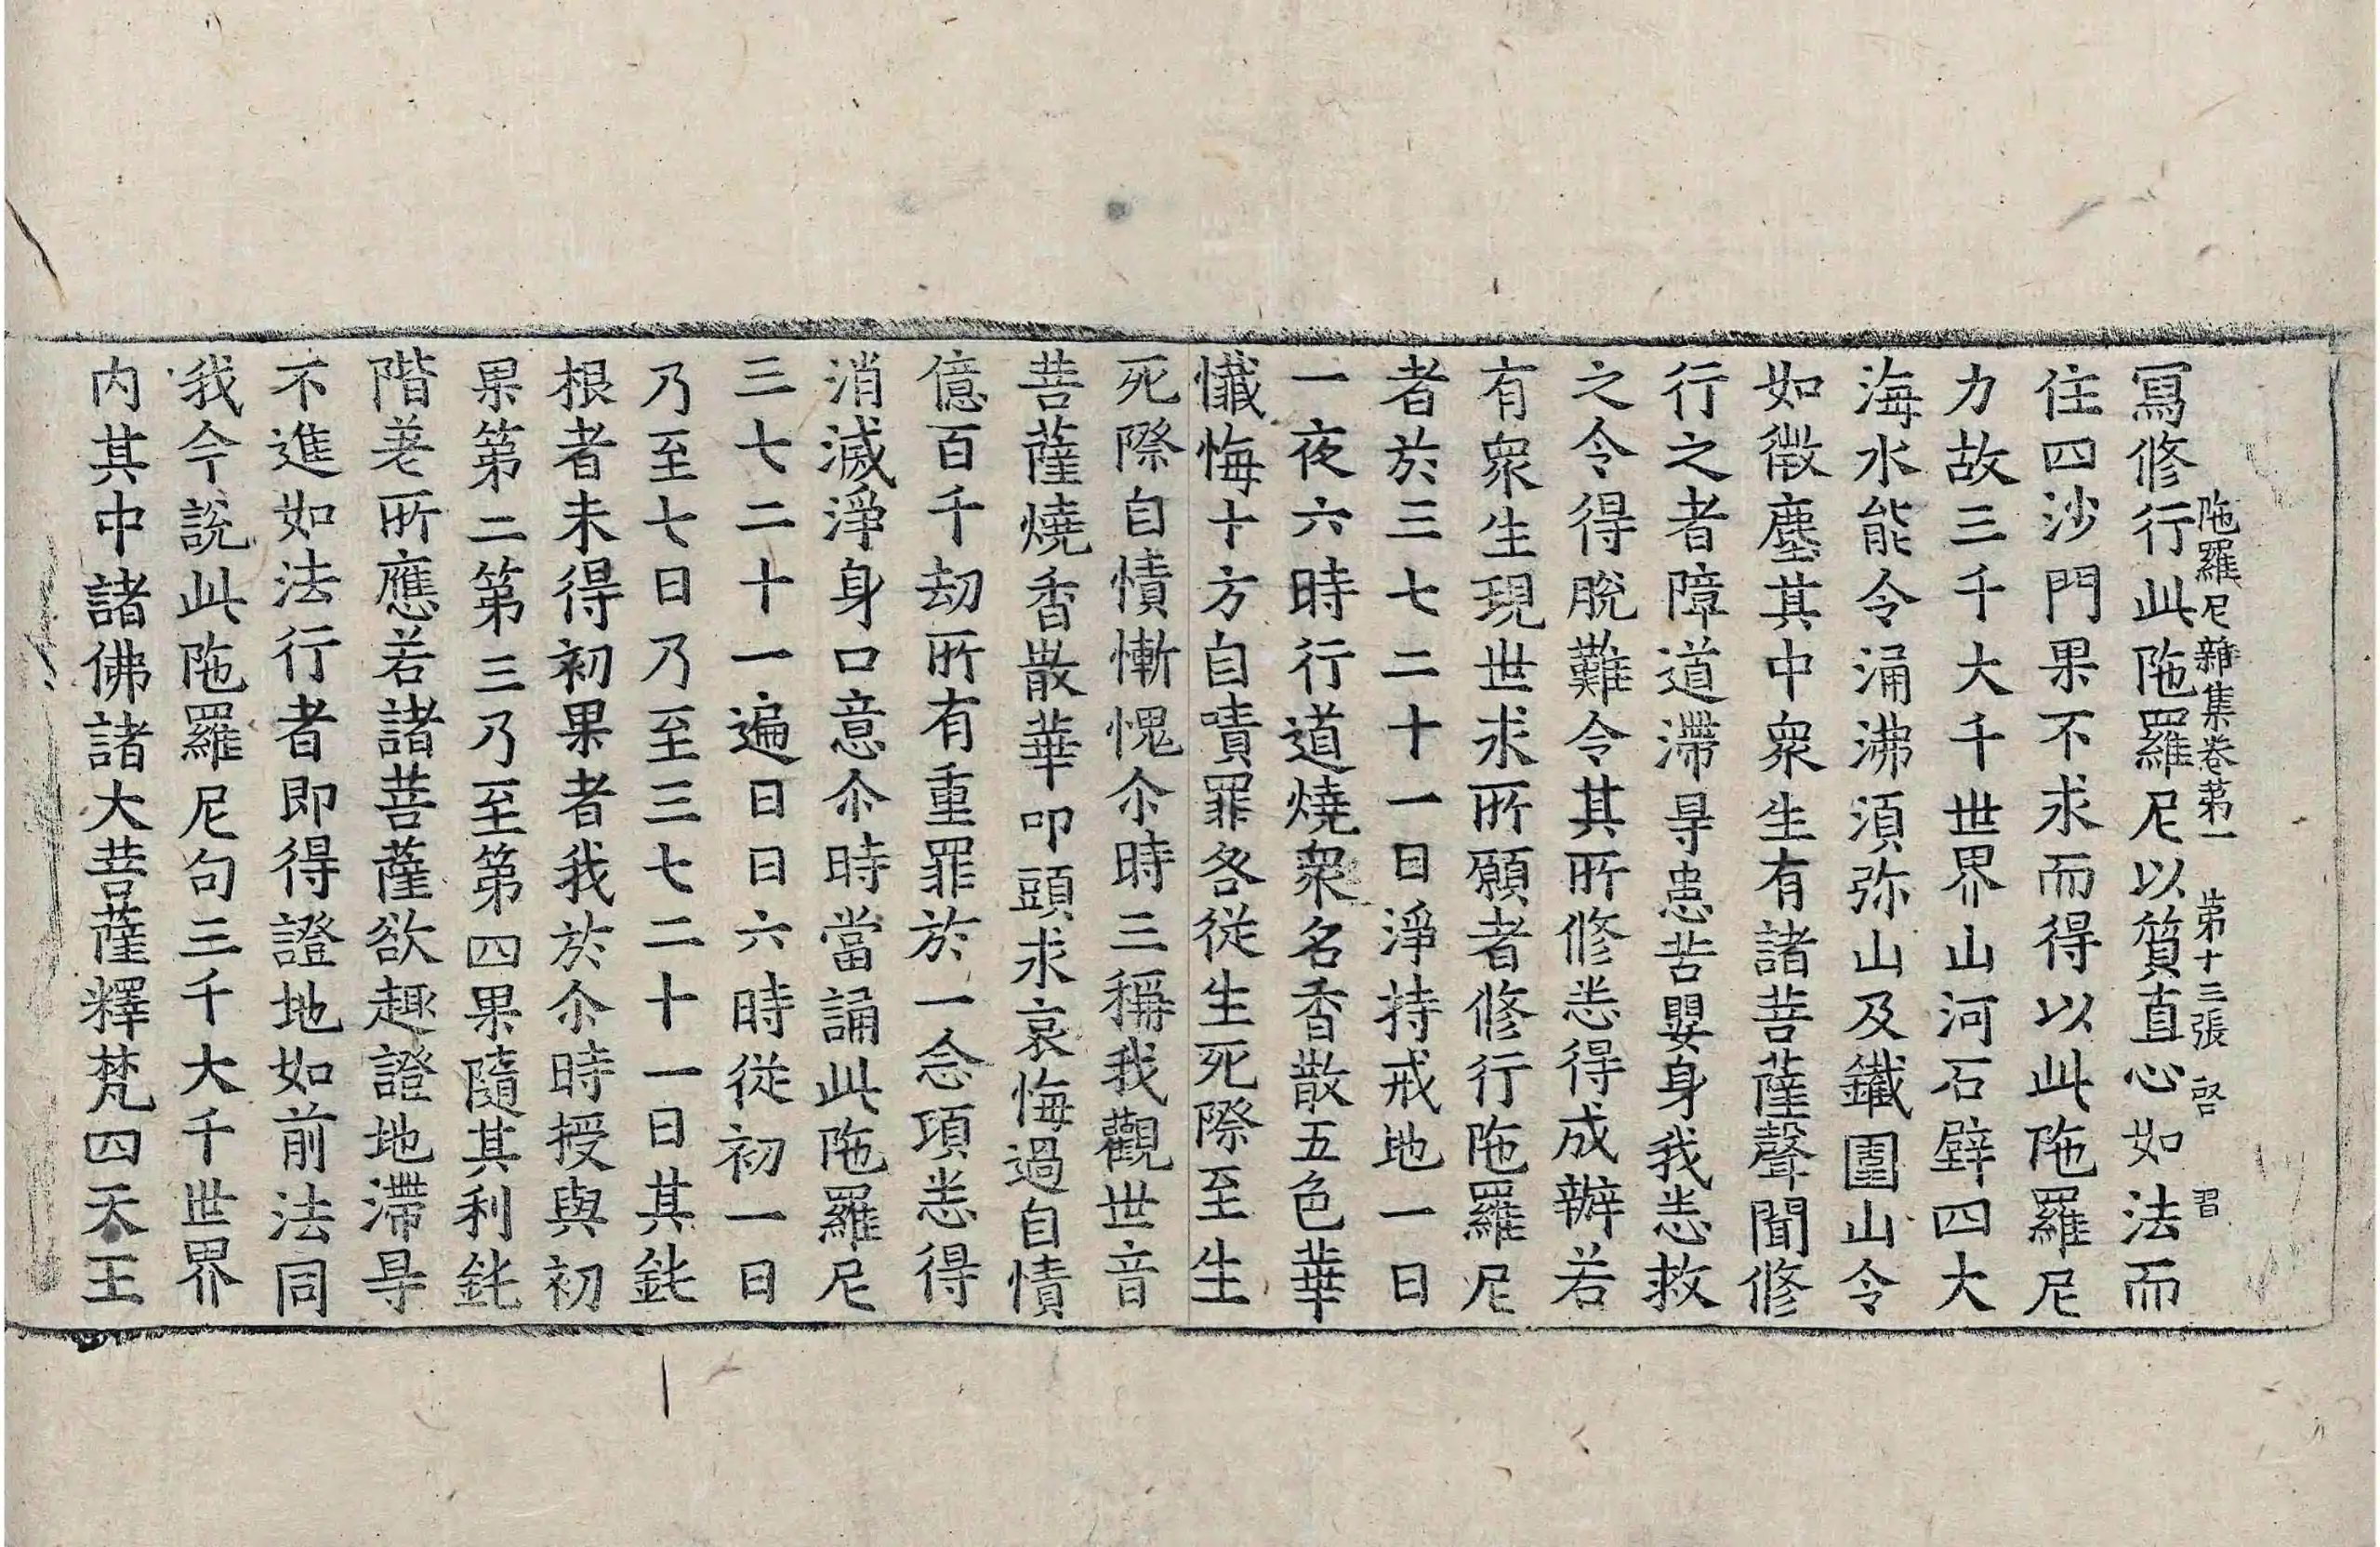 陁羅尼雜集卷第一 第十三張 啓 習
冩修行此陁羅尼以質直心如法而
住四沙門果不求而得以此陁羅尼
力故三千大千世界山河石壁四大
海水能令涌沸須弥山及鐵圍山令
如微塵其中衆生有諸菩薩聲聞修
行之者障道滯㝵患苦嬰身我悉救
之令得脫難令其所修悉得成辦若
有衆生現世求所願者修行陁羅尼
者於三七二十一日淨持戒地一日
一夜六時行道燒衆名香散五色華
懺悔十方自責罪各從生死際至生
死際自憒慚愧尒時三稱我觀世音
菩薩燒香散華叩頭求哀悔過自憒
億百千劫所有重罪於一念項悉得
消滅淨身口意尒時當誦此陁羅尼
三七二十一遍日日六時從初一日
乃至七日乃至三七二十一日其鈍
根者未得初果者我於尒時授與初
果第二第三乃至第四果隨其利鈍
階差所應若諸菩薩欲趣證地滯㝵
不進如法行者即得證地如前法同
我今說此陁羅尼句三千大千世界
内其中諸佛諸大菩薩釋梵四天王